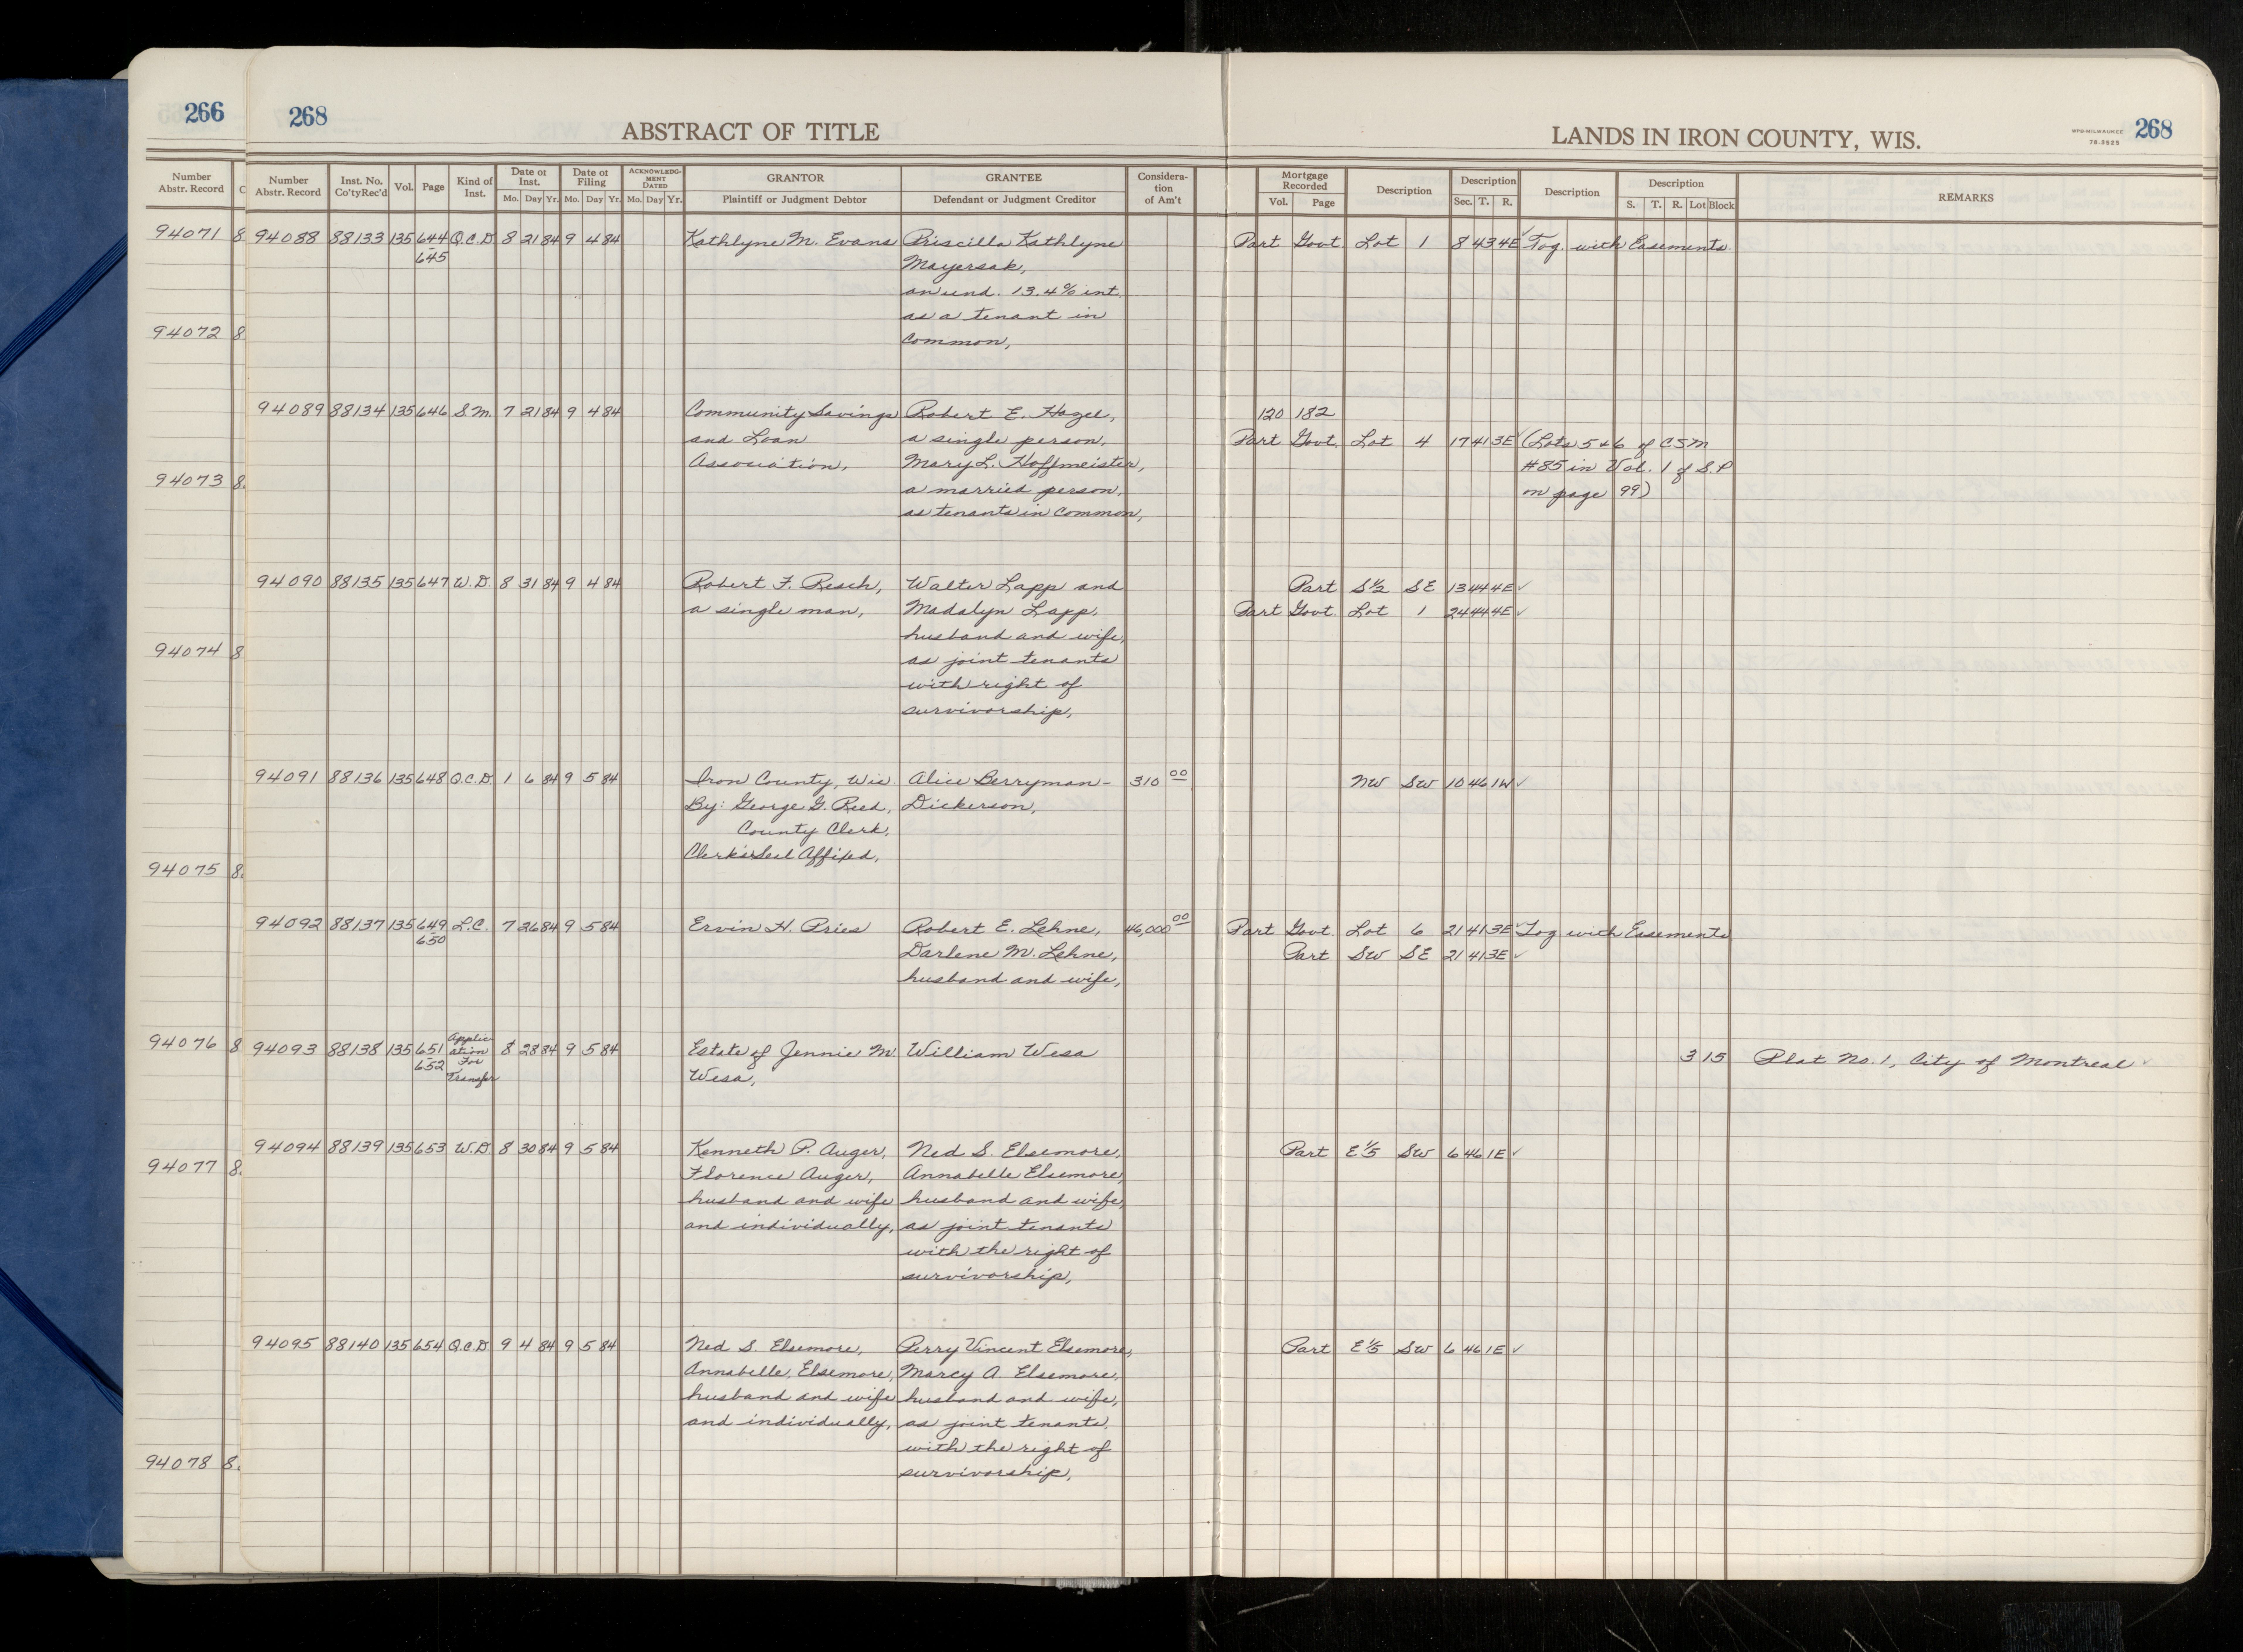 266
268
ABSTRACT OF TITLE
LANDS IN IRON COUNTY, WIS.
268
Number Abstr. Record
Number Abstr. Record Inst. No. Co'tyRec'd Vol. Page Kind of Inst. Date of Inst. Mo. Day Yr. Date of Filing Mo. Day Yr. ACKNOWLEDGMENT DATED Mo. Day Yr. GRANTOR Plaintiff or Judgment Debtor GRANTEE Defendant or Judgment Creditor Consideration of Am't
Mortgage Recorded Vol. Page Description Description Sec. T. R. Description Description S. T. R. Lot Block REMARKS
94071 8
94072 8
94073 8
94074 8
94075 8
94076 8
94077 8
94078 8
94088 88133 135 644 Q.C.D 8 21 84 9 4 84 Kathlyne M. Evans Priscilla Kathlyne Part Govt. Lot 1 8 43 4E Tog. with Easements
645 Mayersak,
an und. 13.4% int.
as a tenant in
common,
94089 88134 135 646 S.M. 7 21 84 9 4 84 Community Savings Robert E. Hagel, 120 182
and Loan a single person, Part Govt. Lot 4 17 41 3E (Lots 5+6 of CSM
Association, Mary L. Hoffmeister, #85 in Vol. 1 of S.P
a married person, on page 99)
as tenants in common,
94090 88135 135 647 W.D 8 31 84 9 4 84 Robert F. Resch, Walter Lapp and Part S½ SE 13 44 4E
a single man, Madalyn Lapp, Part Govt. Lot 1 24 44 4E
husband and wife,
as joint tenants
with right of
survivorship,
94091 88136 135 648 Q.C.D. 1 6 84 9 5 84 Iron County, Wis. Alice Berryman- 310 00 NW SW 10 46 1W
By: George G. Reed, Dickerson,
County Clerk,
Clerk's Seal Affixed,
94092 88137 135 649 L.C. 7 26 84 9 5 84 Ervin H. Pries Robert E. Lehne, 46,000 00 Part Govt. Lot 6 21 41 3E Tog with Easements
650 Darlene M. Lehne, Part SW SE 21 41 3E
husband and wife,
94093 88138 135 651 Application For Transfer 8 28 84 9 5 84 Estate of Jennie M. William Wesa 3 15 Plat No. 1, City of Montreal
652 Wesa,
94094 88139 135 653 W.D. 8 30 84 9 5 84 Kenneth P. Auger, Ned S. Elsemore, Part E⅕ SW 6 46 1E
Florence Auger, Annabelle Elsemore,
husband and wife husband and wife,
and individually, as joint tenants
with the right of
survivorship,
94095 88140 135 654 Q.C.D 9 4 84 9 5 84 Ned S. Elsemore, Perry Vincent Elsemore, Part E⅕ SW 6 46 1E
Annabelle Elsemore, Marcy A. Elsemore,
husband and wife husband and wife,
and individually, as joint tenants,
with the right of
survivorship,